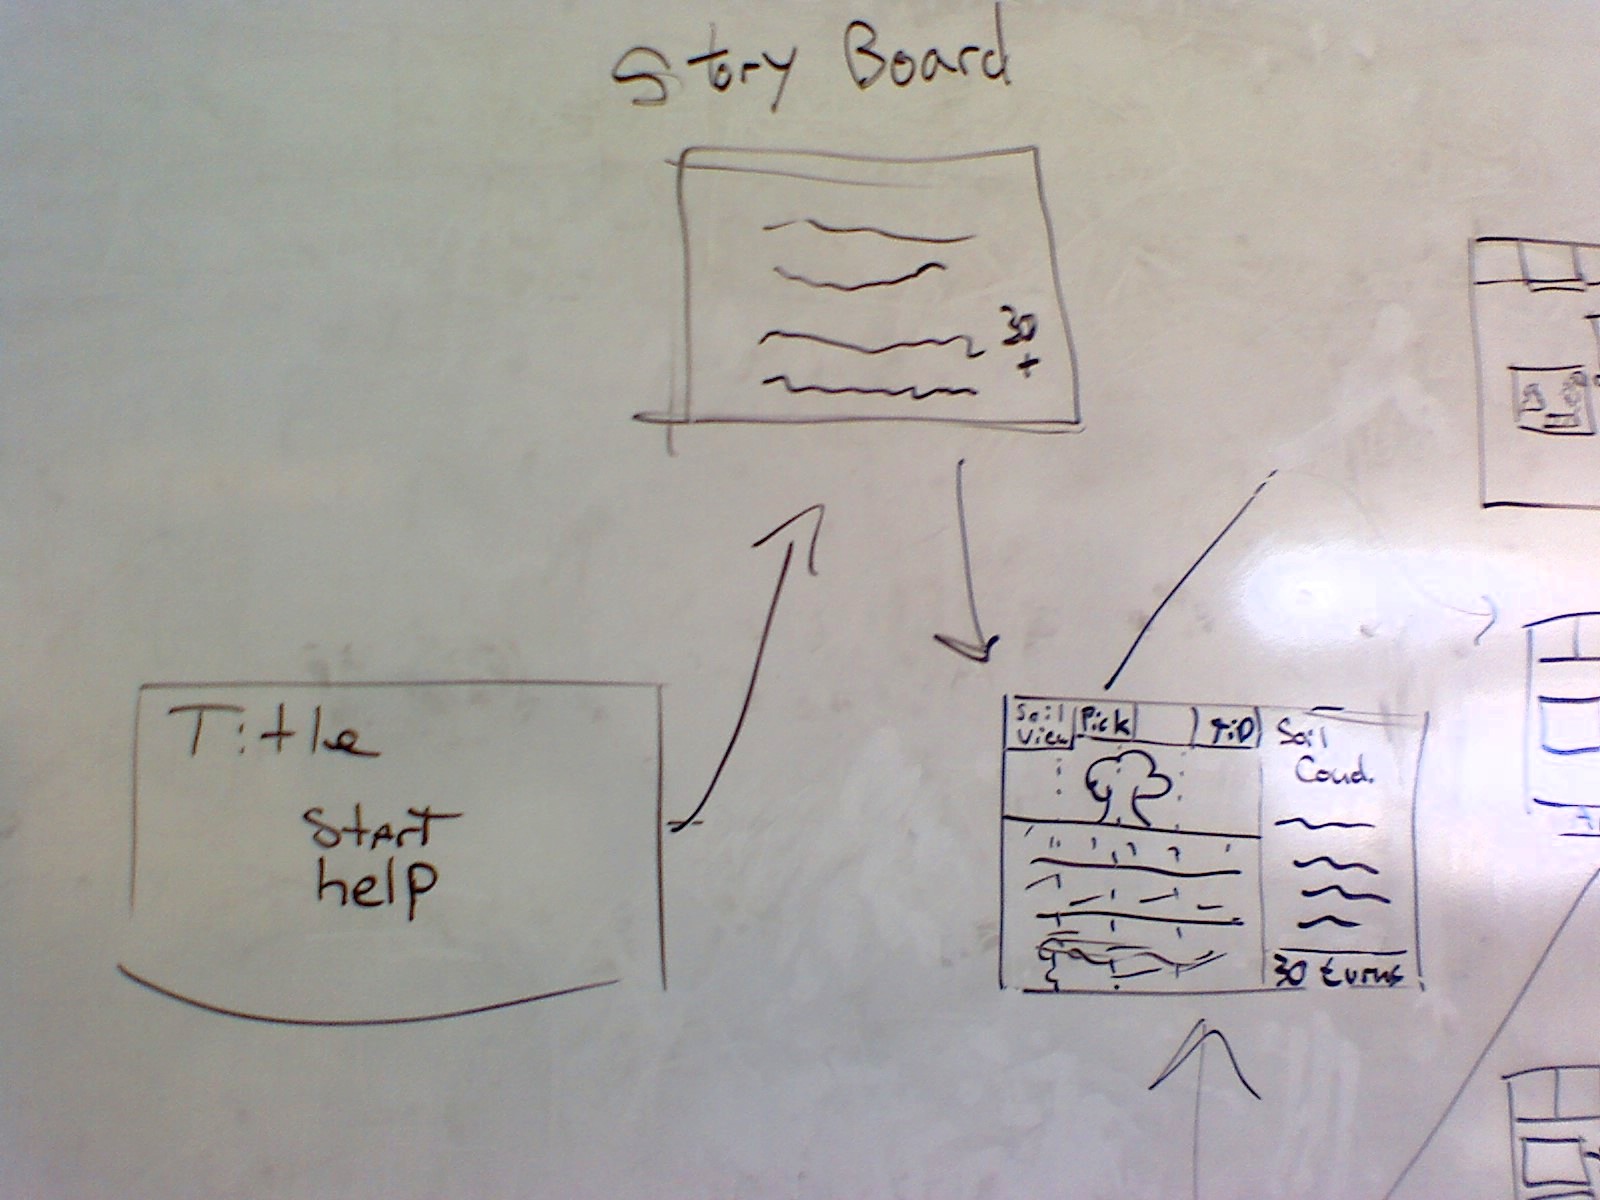 Story Board
30
+
Title
Start
help
Soil
View
Pick
Soil
Cond.
30 turns